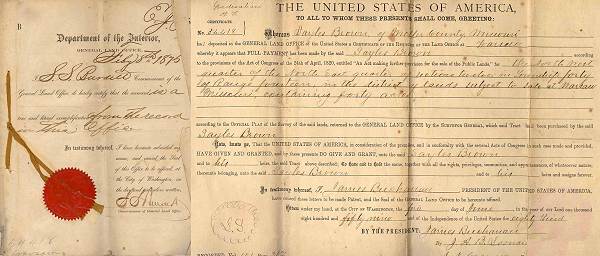 B
Department of the Interior,
GENERAL LAND OFFICE,
July 1875
I, S. S. Burdett, Commissioner of the
General Land Office, do hereby certify that the annexed is a
true and exemplification from the record
in this Office
In testimony whereof, I have hereunto subscribed my
name, and caused the Seal
of this Office to be affixed, at
the City of Washington,
on the day and year above written.
S. S. Burdett
Commissioner of the General Land Office.
CERTIFICATE
No.
THE UNITED STATES OF AMERICA,
TO ALL TO WHOM THESE PRESENTS SHALL COME, GREETING:
Whereas Sayles Brown of County, Missouri
has deposited in the GENERAL LAND OFFICE of the United States a Certificate of the REGISTER OF THE LAND OFFICE at Warsaw
whereby it appears that FULL PAYMENT has been made by the said Sayles Brown according
to the provisions of the Act of Congress of the 24th of April, 1820, entitled "An Act making further provision for the sale of the Public Lands," for the North West
quarter of the North East quarter of section twelve in Township forty
in Range fourteen, in the district of lands subject to sale at Warsaw
Missouri, containing forty acres
according to the OFFICIAL PLAT of the Survey of the said lands, returned to the GENERAL LAND OFFICE by the SURVEYOR GENERAL, which said Tract has been purchased by the said
Sayles Brown
Now, know ye, That the UNITED STATES OF AMERICA, in consideration of the premises, and in conformity with the several Acts of Congress in such case made and provided,
HAVE GIVEN AND GRANTED, and by these presents DO GIVE AND GRANT, unto the said Sayles Brown
and to his heirs the said Tract above described: To have and to hold the same, together with all the rights, privileges, immunities, and appurtenances, of whatsoever nature,
thereunto belonging, unto the said Sayles Brown and to his heirs and assigns forever.
In testimony whereof, I, James Buchanan PRESIDENT OF THE UNITED STATES OF AMERICA,
have caused these letters to be made Patent, and the Seal of the GENERAL LAND OFFICE to be hereunto affixed.
Given under my hand, at the CITY OF WASHINGTON, the day of June in the year of Our Lord one thousand
eight hundred and fifty nine and of the Independence of the United States the eighty third
BY THE PRESIDENT: James Buchanan
L. S.